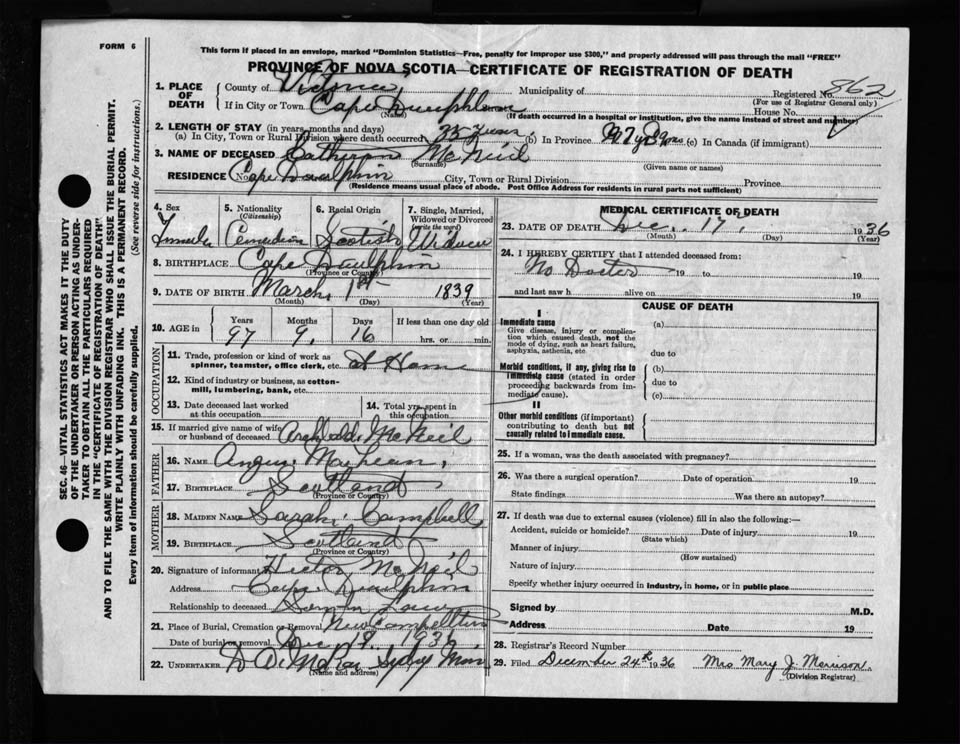 FORM 6
This form if placed in an envelope, marked "Dominion Statistics—Free, penalty for improper use $300," and properly addressed will pass through the mail "FREE"
PROVINCE OF NOVA SCOTIA—CERTIFICATE OF REGISTRATION OF DEATH
1. PLACE OF DEATH
County of Victoria Municipality of Registered No. 862
(For use of Registrar General only)
If in City or Town Cape Dauphin House No.
(Name) (If death occurred in a hospital or institution, give the name instead of street and number)
2. LENGTH OF STAY (in years, months and days)
(a) In City, Town or Rural Division where death occurred (b) In Province 97 y 9 mos (c) In Canada (if immigrant)
3. NAME OF DECEASED McNeil
(Surname) (Given name or names)
RESIDENCE No. Cape Dauphin City, Town or Rural Division Province
(Residence means usual place of abode. Post Office Address for residents in rural parts not sufficient)
4. Sex 5. Nationality (Citizenship) 6. Racial Origin 7. Single, Married, Widowed or Divorced (write the word)
Female Canadian Scotish Widow
8. BIRTHPLACE Cape Dauphin
(Province or Country)
9. DATE OF BIRTH March 1st 1839
(Month) (Day) (Year)
10. AGE in Years Months Days If less than one day old
97 9 16 hrs. or min.
OCCUPATION
11. Trade, profession or kind of work as spinner, teamster, office clerk, etc. at Home
12. Kind of industry or business, as cotton-mill, lumbering, bank, etc.
13. Date deceased last worked at this occupation 14. Total yrs. spent in this occupation
15. If married give name of wife or husband of deceased McNeil
FATHER
16. NAME Angus MacLean
17. BIRTHPLACE Scotland
(Province or Country)
MOTHER
18. MAIDEN NAME Sarah Campbell
19. BIRTHPLACE Scotland
(Province or Country)
20. Signature of informant Victor McNeil
Address Cape Dauphin
Relationship to deceased Son in Law
21. Place of Burial, Cremation or Removal New Campbellton
Date of burial or removal Dec 19 1936
22. UNDERTAKER Sydney Mines
(Name and address)
MEDICAL CERTIFICATE OF DEATH
23. DATE OF DEATH Dec. 17, 1936
(Month) (Day) (Year)
24. I HEREBY CERTIFY that I attended deceased from:
No Doctor 19 to 19
and last saw h alive on 19
CAUSE OF DEATH
I
Immediate cause
Give disease, injury or complication which caused death, not the mode of dying, such as heart failure, asphyxia, asthenia, etc.
(a)
due to
Morbid conditions, if any, giving rise to immediate cause (stated in order proceeding backwards from immediate cause).
(b)
due to
(c)
II
Other morbid conditions (if important) contributing to death but not causally related to immediate cause.
25. If a woman, was the death associated with pregnancy?
26. Was there a surgical operation? Date of operation 19
State findings Was there an autopsy?
27. If death was due to external causes (violence) fill in also the following:—
Accident, suicide or homicide? Date of injury 19
(State which)
Manner of injury
(How sustained)
Nature of injury
Specify whether injury occurred in industry, in home, or in public place
Signed by M.D.
Address Date 19
28. Registrar's Record Number
29. Filed December 24th 1936 Mrs Mary J. Morrison
(Division Registrar)
SEC. 46—VITAL STATISTICS ACT MAKES IT THE DUTY
OF THE UNDERTAKER OR PERSON ACTING AS UNDER-
TAKER TO OBTAIN ALL THE PARTICULARS REQUIRED
IN THE "CERTIFICATE OF REGISTRATION OF DEATH"
AND TO FILE THE SAME WITH THE DIVISION REGISTRAR WHO SHALL ISSUE THE BURIAL PERMIT.
WRITE PLAINLY WITH UNFADING INK. THIS IS A PERMANENT RECORD.
Every item of information should be carefully supplied. (See reverse side for instructions.)